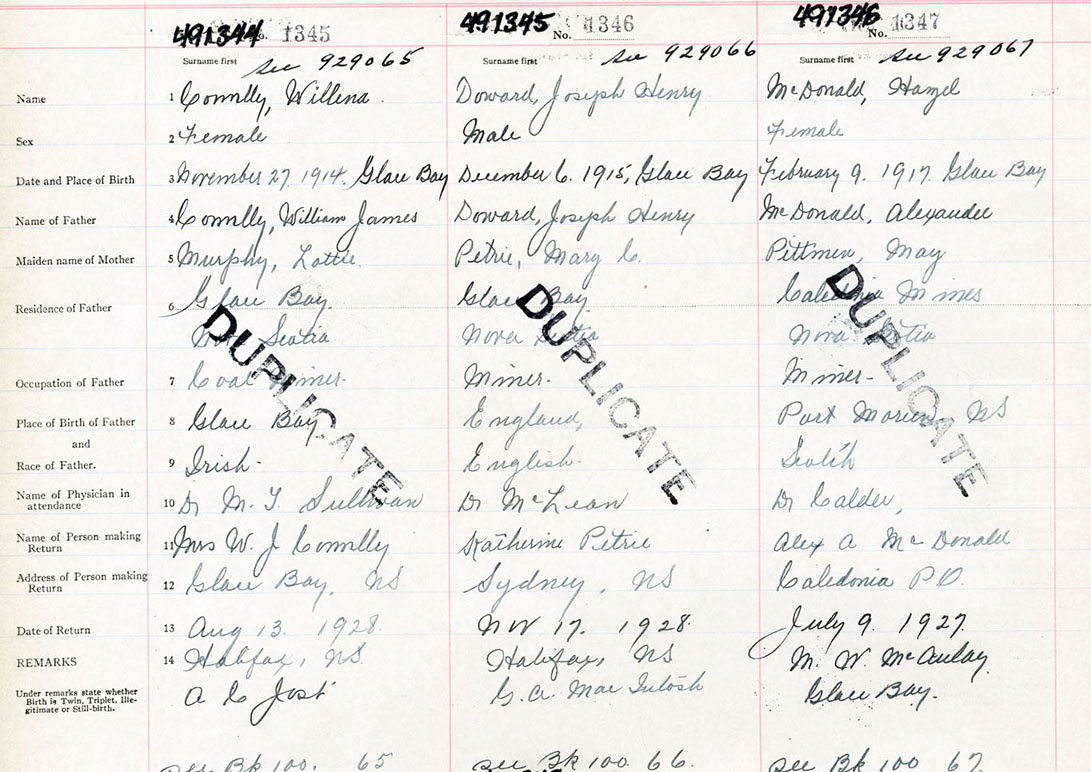 491344 No. 1345 491345 No. 1346 491346 No. 1347
Surname first see 929065 Surname first see 929066 Surname first see 929067
Name 1 Connlly, Willena Doward, Joseph Henry McDonald, Hazel
Sex 2 Female Male Female
Date and Place of Birth 3 November 27, 1914. Glace Bay December 6. 1915, Glace Bay February 9. 1917. Glace Bay
Name of Father 4 Connlly, William James Doward, Joseph Henry McDonald, Alexander
Maiden name of Mother 5 Murphy, Lottie. Petrie, Mary C. Pittmen, May
Residence of Father 6 Glace Bay Glace Bay Caledonia Mines
Nova Scotia Nova Scotia Nova Scotia
DUPLICATE DUPLICATE DUPLICATE
Occupation of Father 7 Coal Miner. Miner. Miner-
Place of Birth of Father 8 Glace Bay. England, Port Morien, NS
and
Race of Father. 9 Irish- English. Scotch
Name of Physician in
attendance 10 Dr M. T. Sullivan Dr McLean Dr Calder,
Name of Person making
Return 11 Mrs W. J Connlly Katherine Petrie Alex A McDonald
Address of Person making
Return 12 Glace Bay, NS Sydney, NS Caledonia P.O.
Date of Return 13 Aug 13. 1928. Nov 17. 1928. July 9. 1927.
REMARKS 14 Halifax, NS. Halifax, NS M. W. McAulay
Under remarks state whether
Birth is Twin, Triplet, Ille-
gitimate or Still-birth.
A C Jost G. A. MacIntosh Glace Bay.
see Bk 100. 65 see Bk 100 66. see Bk 100 67.